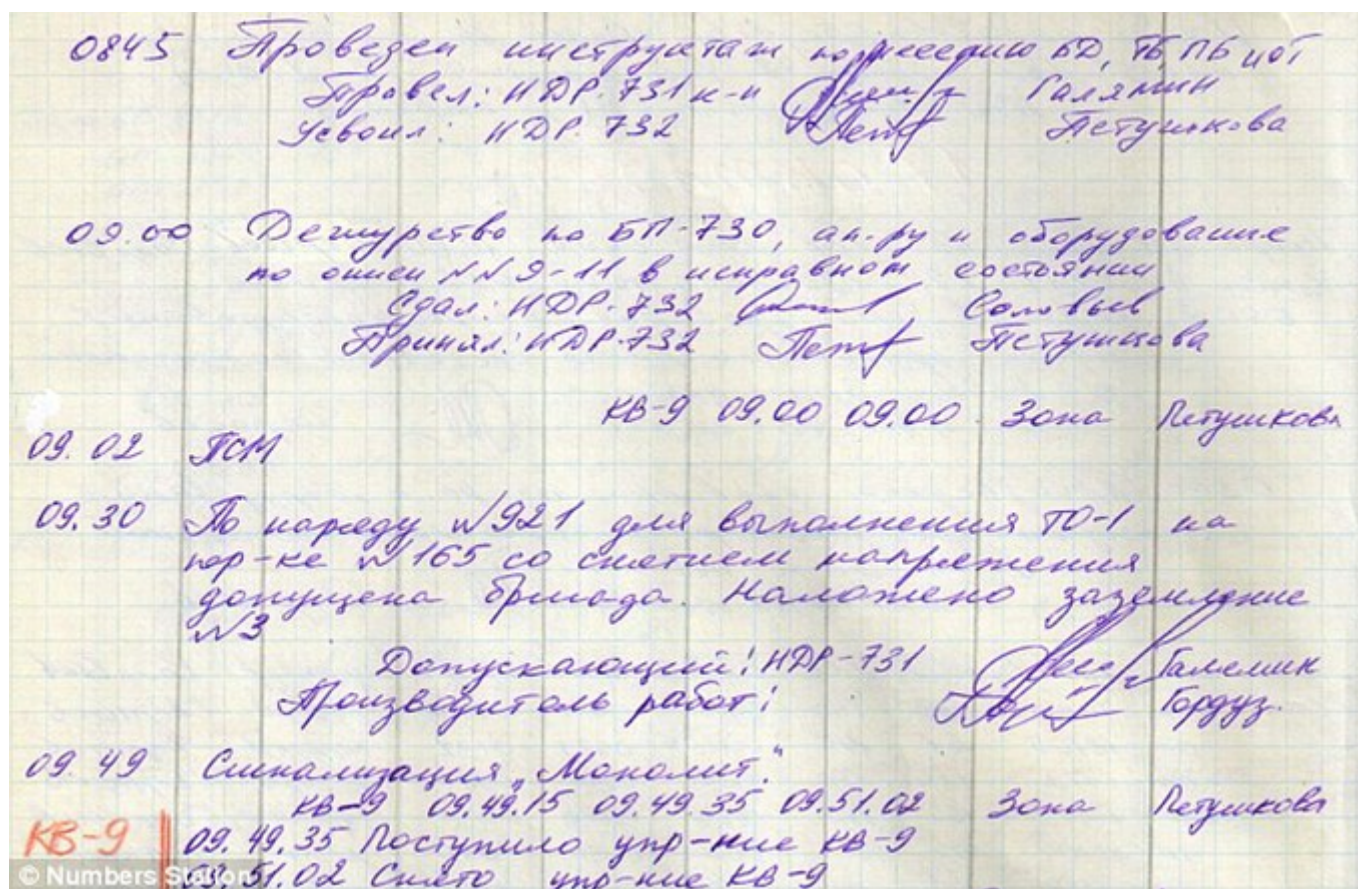 0845 Проведен инструктаж по несению БД, ТБ, ПБ и ОТ
Провел: НДР-731 к-н Галямин
Усвоил: НДР. 732 Петушкова
09.00 Дежурство по БП-730, ап-ру и оборудование
по описи №№ 9-11 в исправном состоянии
Сдал: НДР-732 Соловьев
Принял: НДР-732 Петушкова
КВ-9 09.00 09.00 Зона Петушкова
09.02 ПСМ
09.30 По наряду №921 для выполнения ТО-1 на
пер-ке №165 со снятием напряжения
допущена бригада. Наложено заземление
№3
Допускающий: НДР-731 Галямин
Производитель работ: Гордуз.
09.49 Сигнализация „Монолит".
КВ-9 09.49.15 09.49.35 09.51.02 Зона Петушкова
КВ-9 09.49.35 Поступило упр-ние КВ-9
09.51.02 Снято упр-ние КВ-9
© Numbers Station